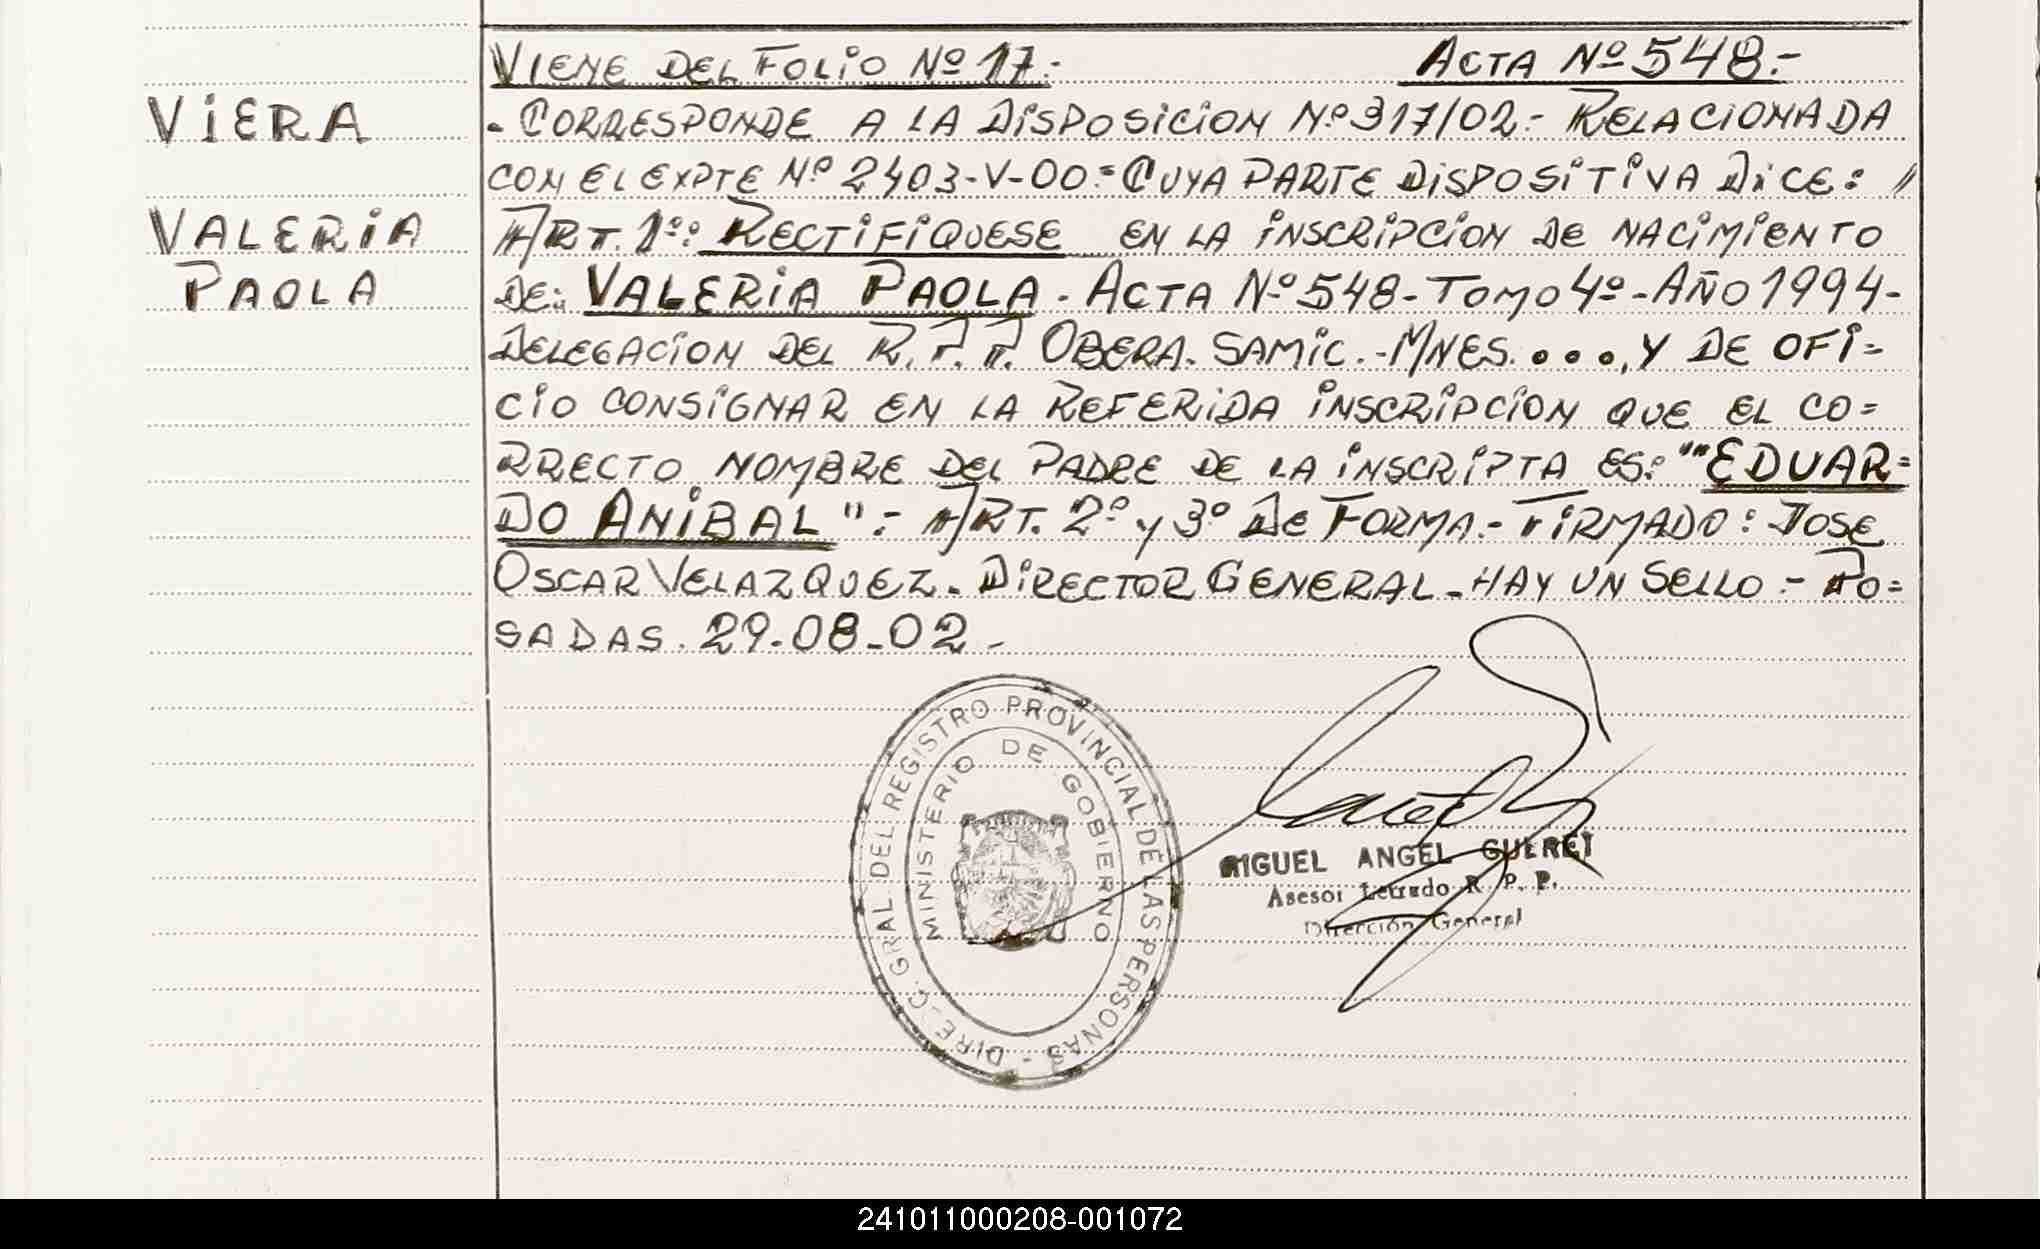 VIENE DEL FOLIO Nº 17.- ACTA Nº 548.-
VIERA
- CORRESPONDE A LA DISPOSICION Nº 317/02.- RELACIONADA
CON EL EXPTE Nº 2403-V-00.= CUYA PARTE DISPOSITIVA DICE: //
VALERIA
ART. 1º: RECTIFIQUESE EN LA INSCRIPCION DE NACIMIENTO
PAOLA
DE: VALERIA PAOLA. ACTA Nº 548-TOMO 4º-AÑO 1994-
DELEGACION DEL R.P.P. OBERA. SAMIC.-MNES. ..., Y DE OFI=
CIO CONSIGNAR EN LA REFERIDA INSCRIPCION QUE EL CO=
RRECTO NOMBRE DEL PADRE DE LA INSCRIPTA ES: ""EDUAR=
DO ANIBAL".- ART. 2º y 3º DE FORMA.- FIRMADO: JOSE
OSCAR VELAZQUEZ. DIRECTOR GENERAL - HAY UN SELLO.- PO=
SADAS. 29-08-02.-
DIREC. GRAL. DEL REGISTRO PROVINCIAL DE LAS PERSONAS -
MINISTERIO DE GOBIERNO
MIGUEL ANGEL GUERET
Asesor Letrado R. P. P.
Dirección General
241011000208-001072